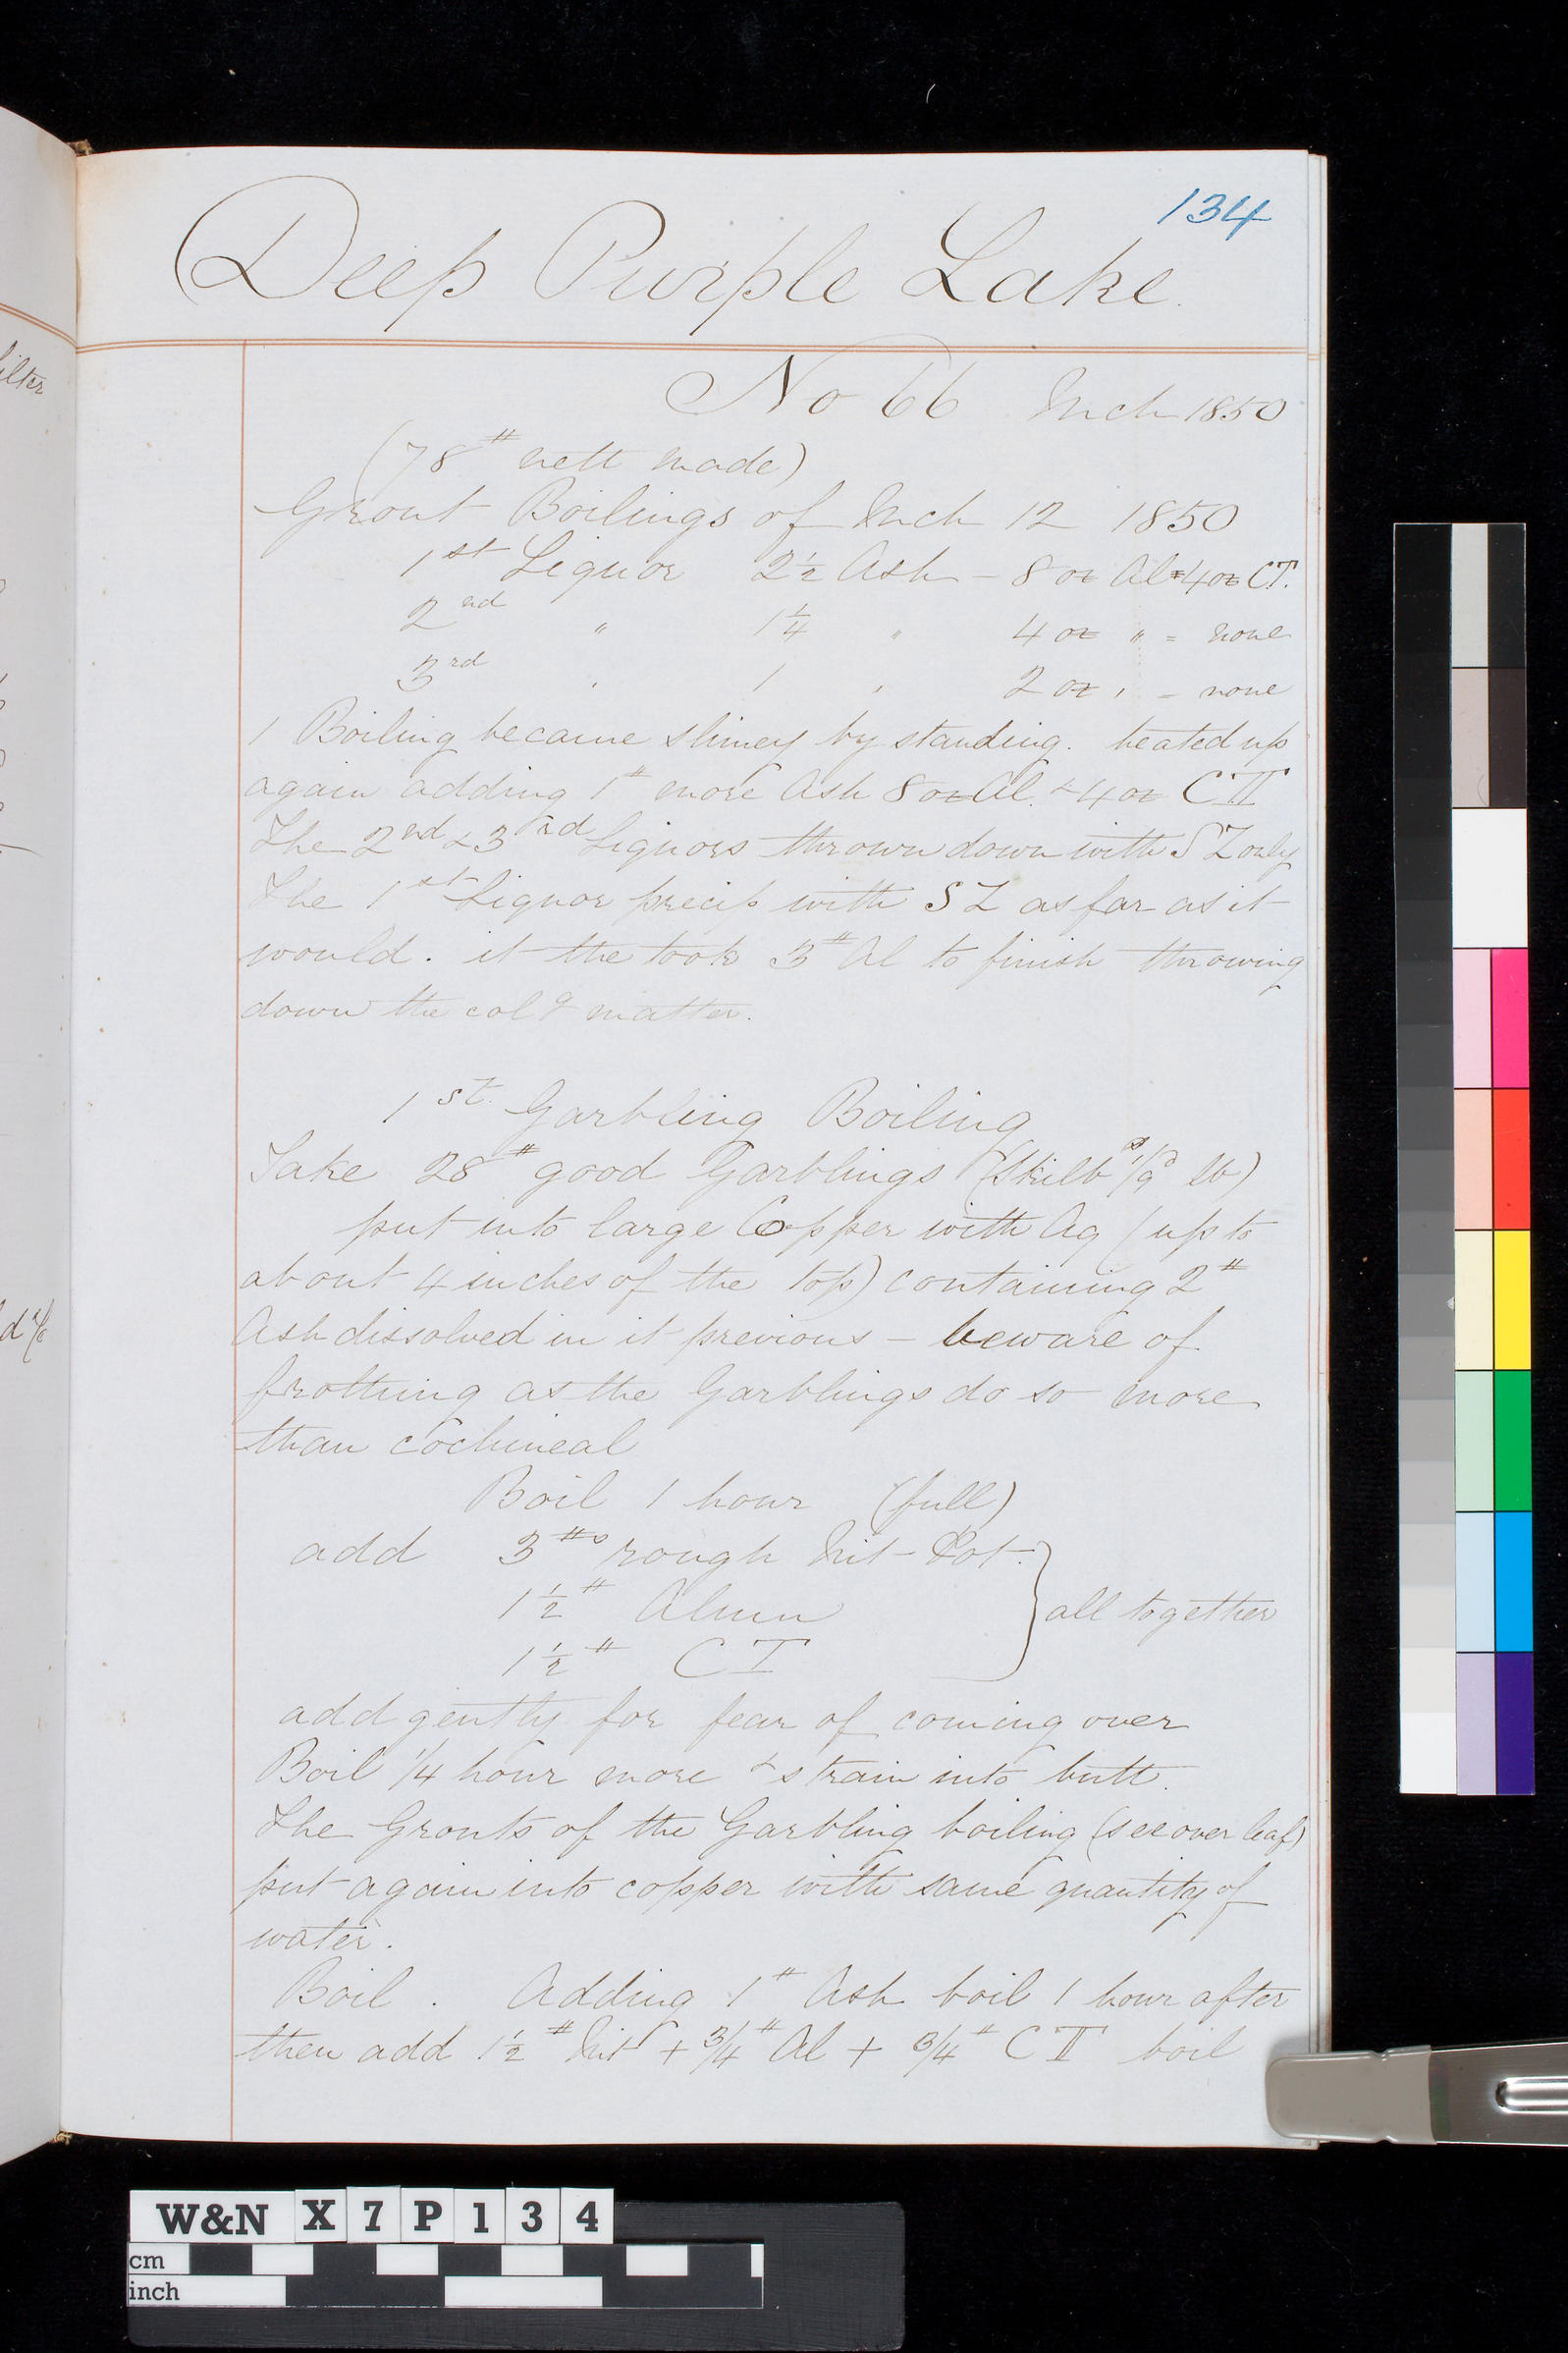 134
Deep Purple Lake.
No 66 Mch 1850
(78# nett made)
Grout Boilings of Mch 12 1850
1st Liquor 2½ Ash - 8 oz Al + 4 oz CT.
2nd " 1¼ " 4 oz " = none
3rd " 1 " 2 oz " = none
1 Boiling became slimey by standing. heated up
again adding 1# more Ash 8 oz Al. & 4 oz CT
The 2nd & 3rd Liquors thrown down with SZ only
The 1st Liquor precip with SZ as far as it
would. it the took 3# Al to finish throwing
down the colg matter.
1st Garbling Boiling
Take 28# good Garblings (Skilb 1/9 lb)
put into large Copper with Aq (up to
about 4 inches of the top) containing 2#
Ash dissolved in it previous - beware of
frothing as the Garblings do so more
than cochineal
Boil 1 hour (full)
add 3#s rough Nit-Pot.
1½# Alum
all together
1½# CT
add gently for fear of coming over
Boil 1/4 hour more & strain into butt.
The Grouts of the Garbling boiling (see over leaf)
put again into copper with same quantity of
water.
Boil. Adding 1# Ash boil 1 hour after
then add 1½# Nit + 3/4# Al + 3/4# CT boil
ilter
W&N X 7 P 1 3 4
cm
inch